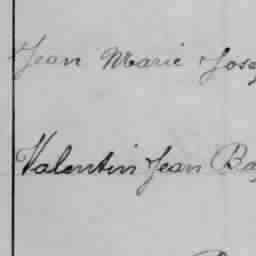 Jean Marie
Valentin Jean